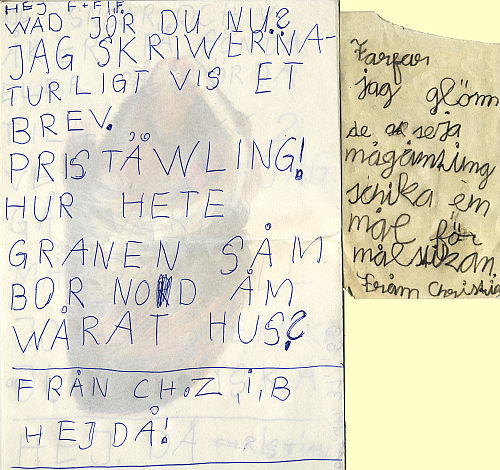 HEJ F+F I.F
WAD JÖR DU NU?
JAG SKRIWER NA-
TURLIGT VIS ET
BREV.
PRISTÄWLING!
HUR HETE
GRANEN SÅM
BOR NOD ÅM
WÅRAT HUS?
FRÅN CH.Z.I.B
HEJ DÅ!
Farfar
jag glöm
de seja
schika em
mål för
målsizan
från Christi